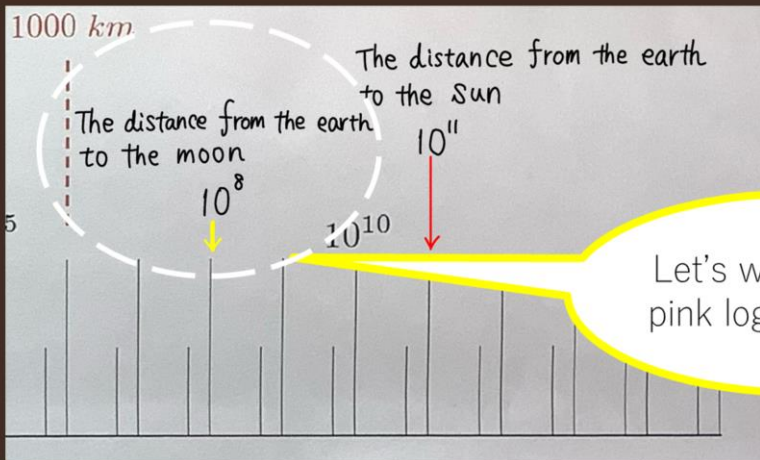 1000 km
The distance from the earth
to the sun
The distance from the earth
to the moon
10¹¹
10⁸
5
10¹⁰
Let's
pink